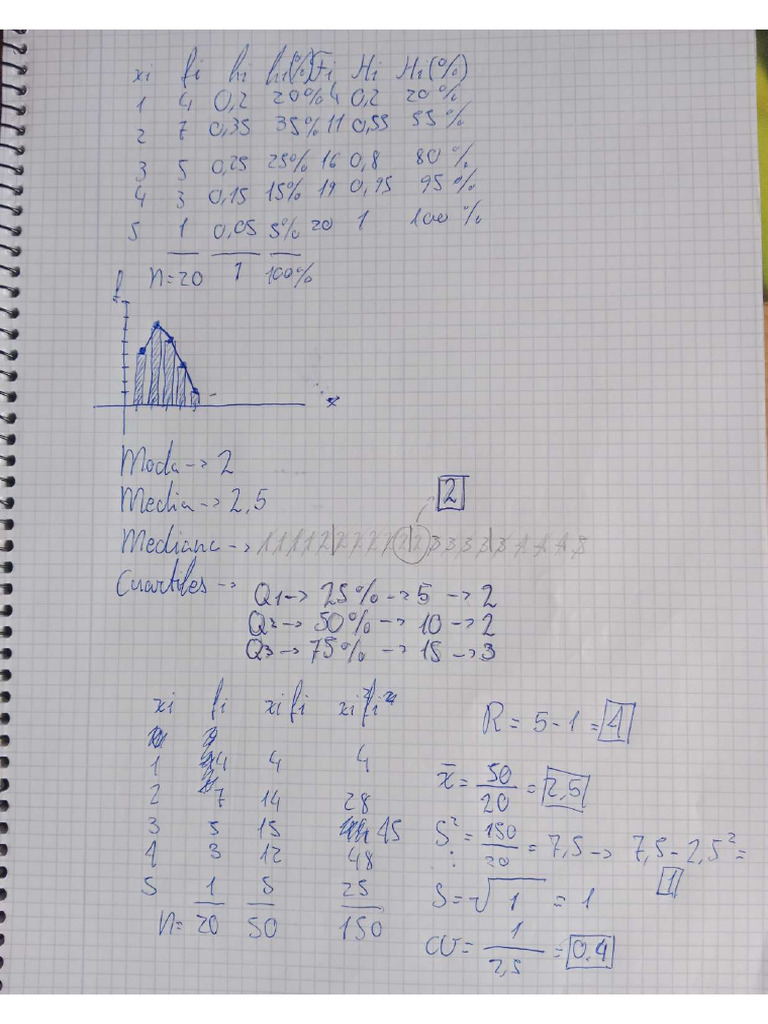 xi fi hi hi(%) Fi Hi Hi(%)
1 4 0,2 20% 4 0,2 20%
2 7 0,35 35% 11 0,55 55%
3 5 0,25 25% 16 0,8 80%
4 3 0,15 15% 19 0,95 95%
5 1 0,05 5% 20 1 100%
n=20 1 100%
f
x
Moda -> 2
Media -> 2,5
2
Mediana -> 1 1 1 1 2 2 2 2 2 2 2 3 3 3 3 3 4 4 4 5
Cuartiles ->
Q1 -> 25% -> 5 -> 2
Q2 -> 50% -> 10 -> 2
Q3 -> 75% -> 15 -> 3
xi fi xifi
R = 5-1 = 4
1 4 4 4
2 7 14 28
x̄ = 50/20 = 2,5
3 5 15 45
S² = 150/20 = 7,5 -> 7,5 - 2,5² = 1
4 3 12 48
5 1 5 25
S = √1 = 1
N= 20 50 150
CV = 1/2,5 = 0.4